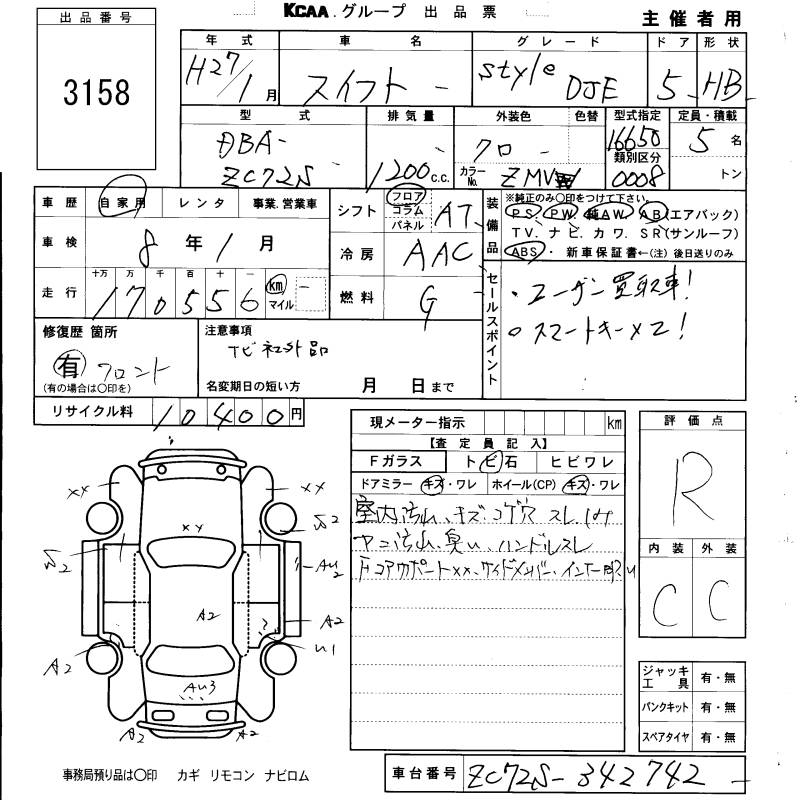 KCAA.グループ 出品票
主催者用
出品番号
3158
年式 車名 グレード ドア 形状
H27/1月 スイフト style DJE 5 HB
型式 排気量 外装色 色替 型式指定 定員・積載
DBA- 1200c.c. クロ 16650 5名
ZC72S カラーNo. ZMV 類別区分 0008 トン
車歴 自家用 レンタ 事業.営業車
車検 8年1月
走行 十万 万 千 百 十 一
170556 km マイル
シフト フロア コラム パネル AT
冷房 AAC
燃料 G
装備品 ※純正のみ〇印をつけて下さい。
PS. PW. 純AW. AB(エアバック)
TV. ナビ. カワ. SR(サンルーフ)
ABS・ 新車保証書←(注)後日送りのみ
セールスポイント
・ユーザー買取車!
○スマートキーX2!
修復歴 箇所
有 フロント
(有の場合は〇印を)
注意事項
TV社外品
名変期日の短い方 月 日まで
リサイクル料 10400円
現メーター指示 km
【査定員記入】
Fガラス トビ石 ヒビワレ
ドアミラー キズ・ワレ ホイール(CP) キズ・ワレ
室内汚れ、キズ、コゲ穴 スレ
ヤニ汚れ、臭い、ハンドルスレ
FコアサポートXX、サイドメンバー、インナー
評価点
R
内装 外装
C C
XX XX
XY
S2
S2
AU2
A2
A2
U1
A2
AU3
A2 A2
ジャッキ工具 有・無
パンクキット 有・無
スペアタイヤ 有・無
事務局預り品は〇印 カギ リモコン ナビロム
車台番号 ZC72S-342742